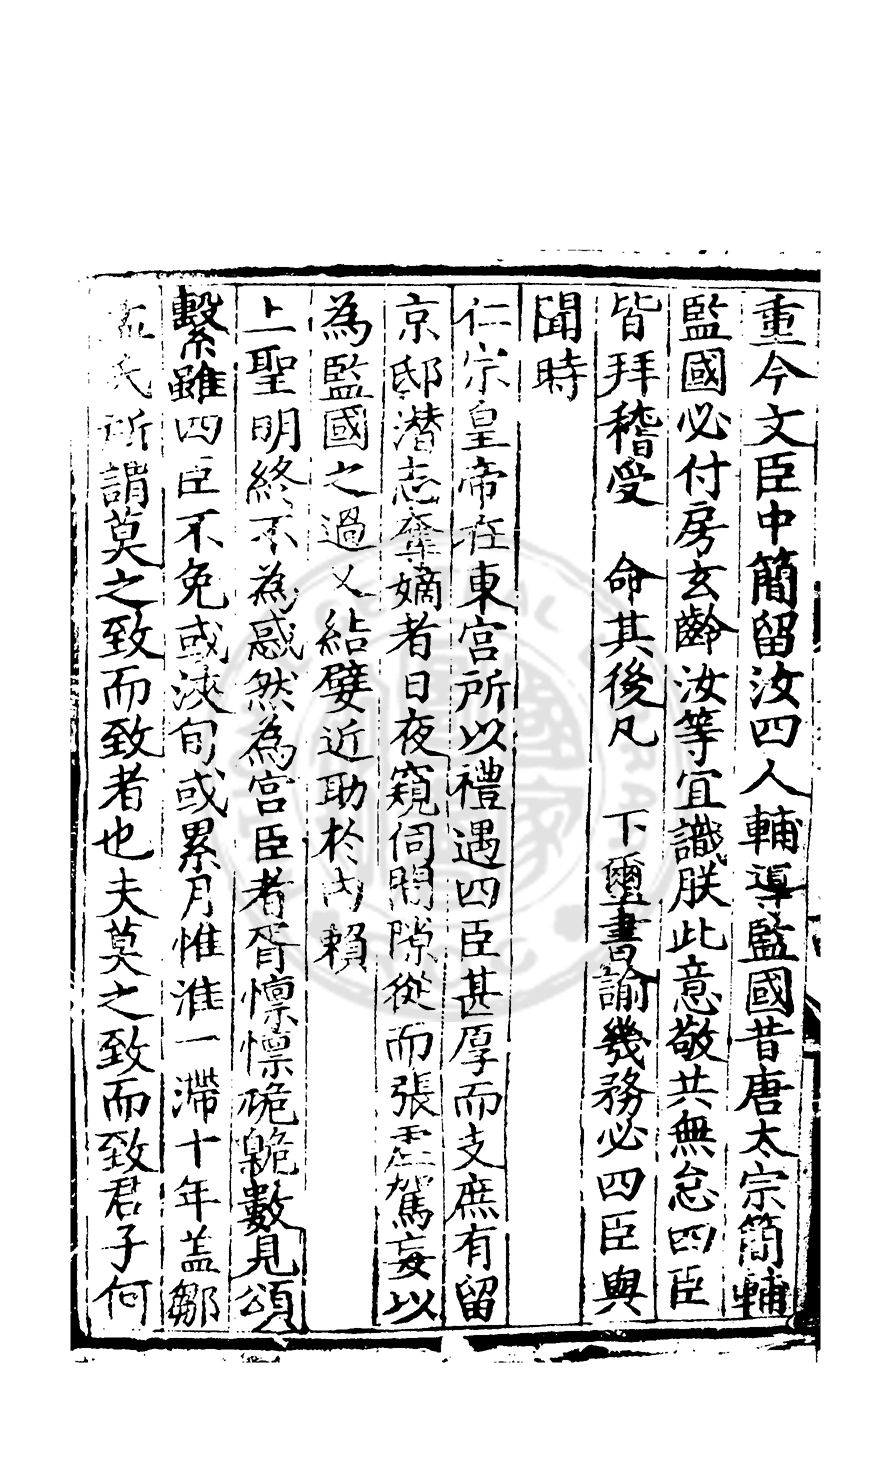 重今文臣中簡留汝四人輔導監國昔唐太宗簡輔
監國必付房玄齡汝等宜識朕此意敬共無怠四臣
皆拜稽受　命其後凡　下璽書諭幾務必四臣與
聞時
仁宗皇帝在東宮所以禮遇四臣甚厚而支庶有留
京邸潛志奪嫡者日夜窺伺間隙從而張虛駕妄以
為監國之過又結嬖近助於內賴
上聖明終不為惑然為宮臣者胥懍懍硊臲數見頌
繫雖四臣不免或浹旬或累月惟淮一滯十年盖鄒
孟氏所謂莫之致而致者也夫莫之致而致君子何